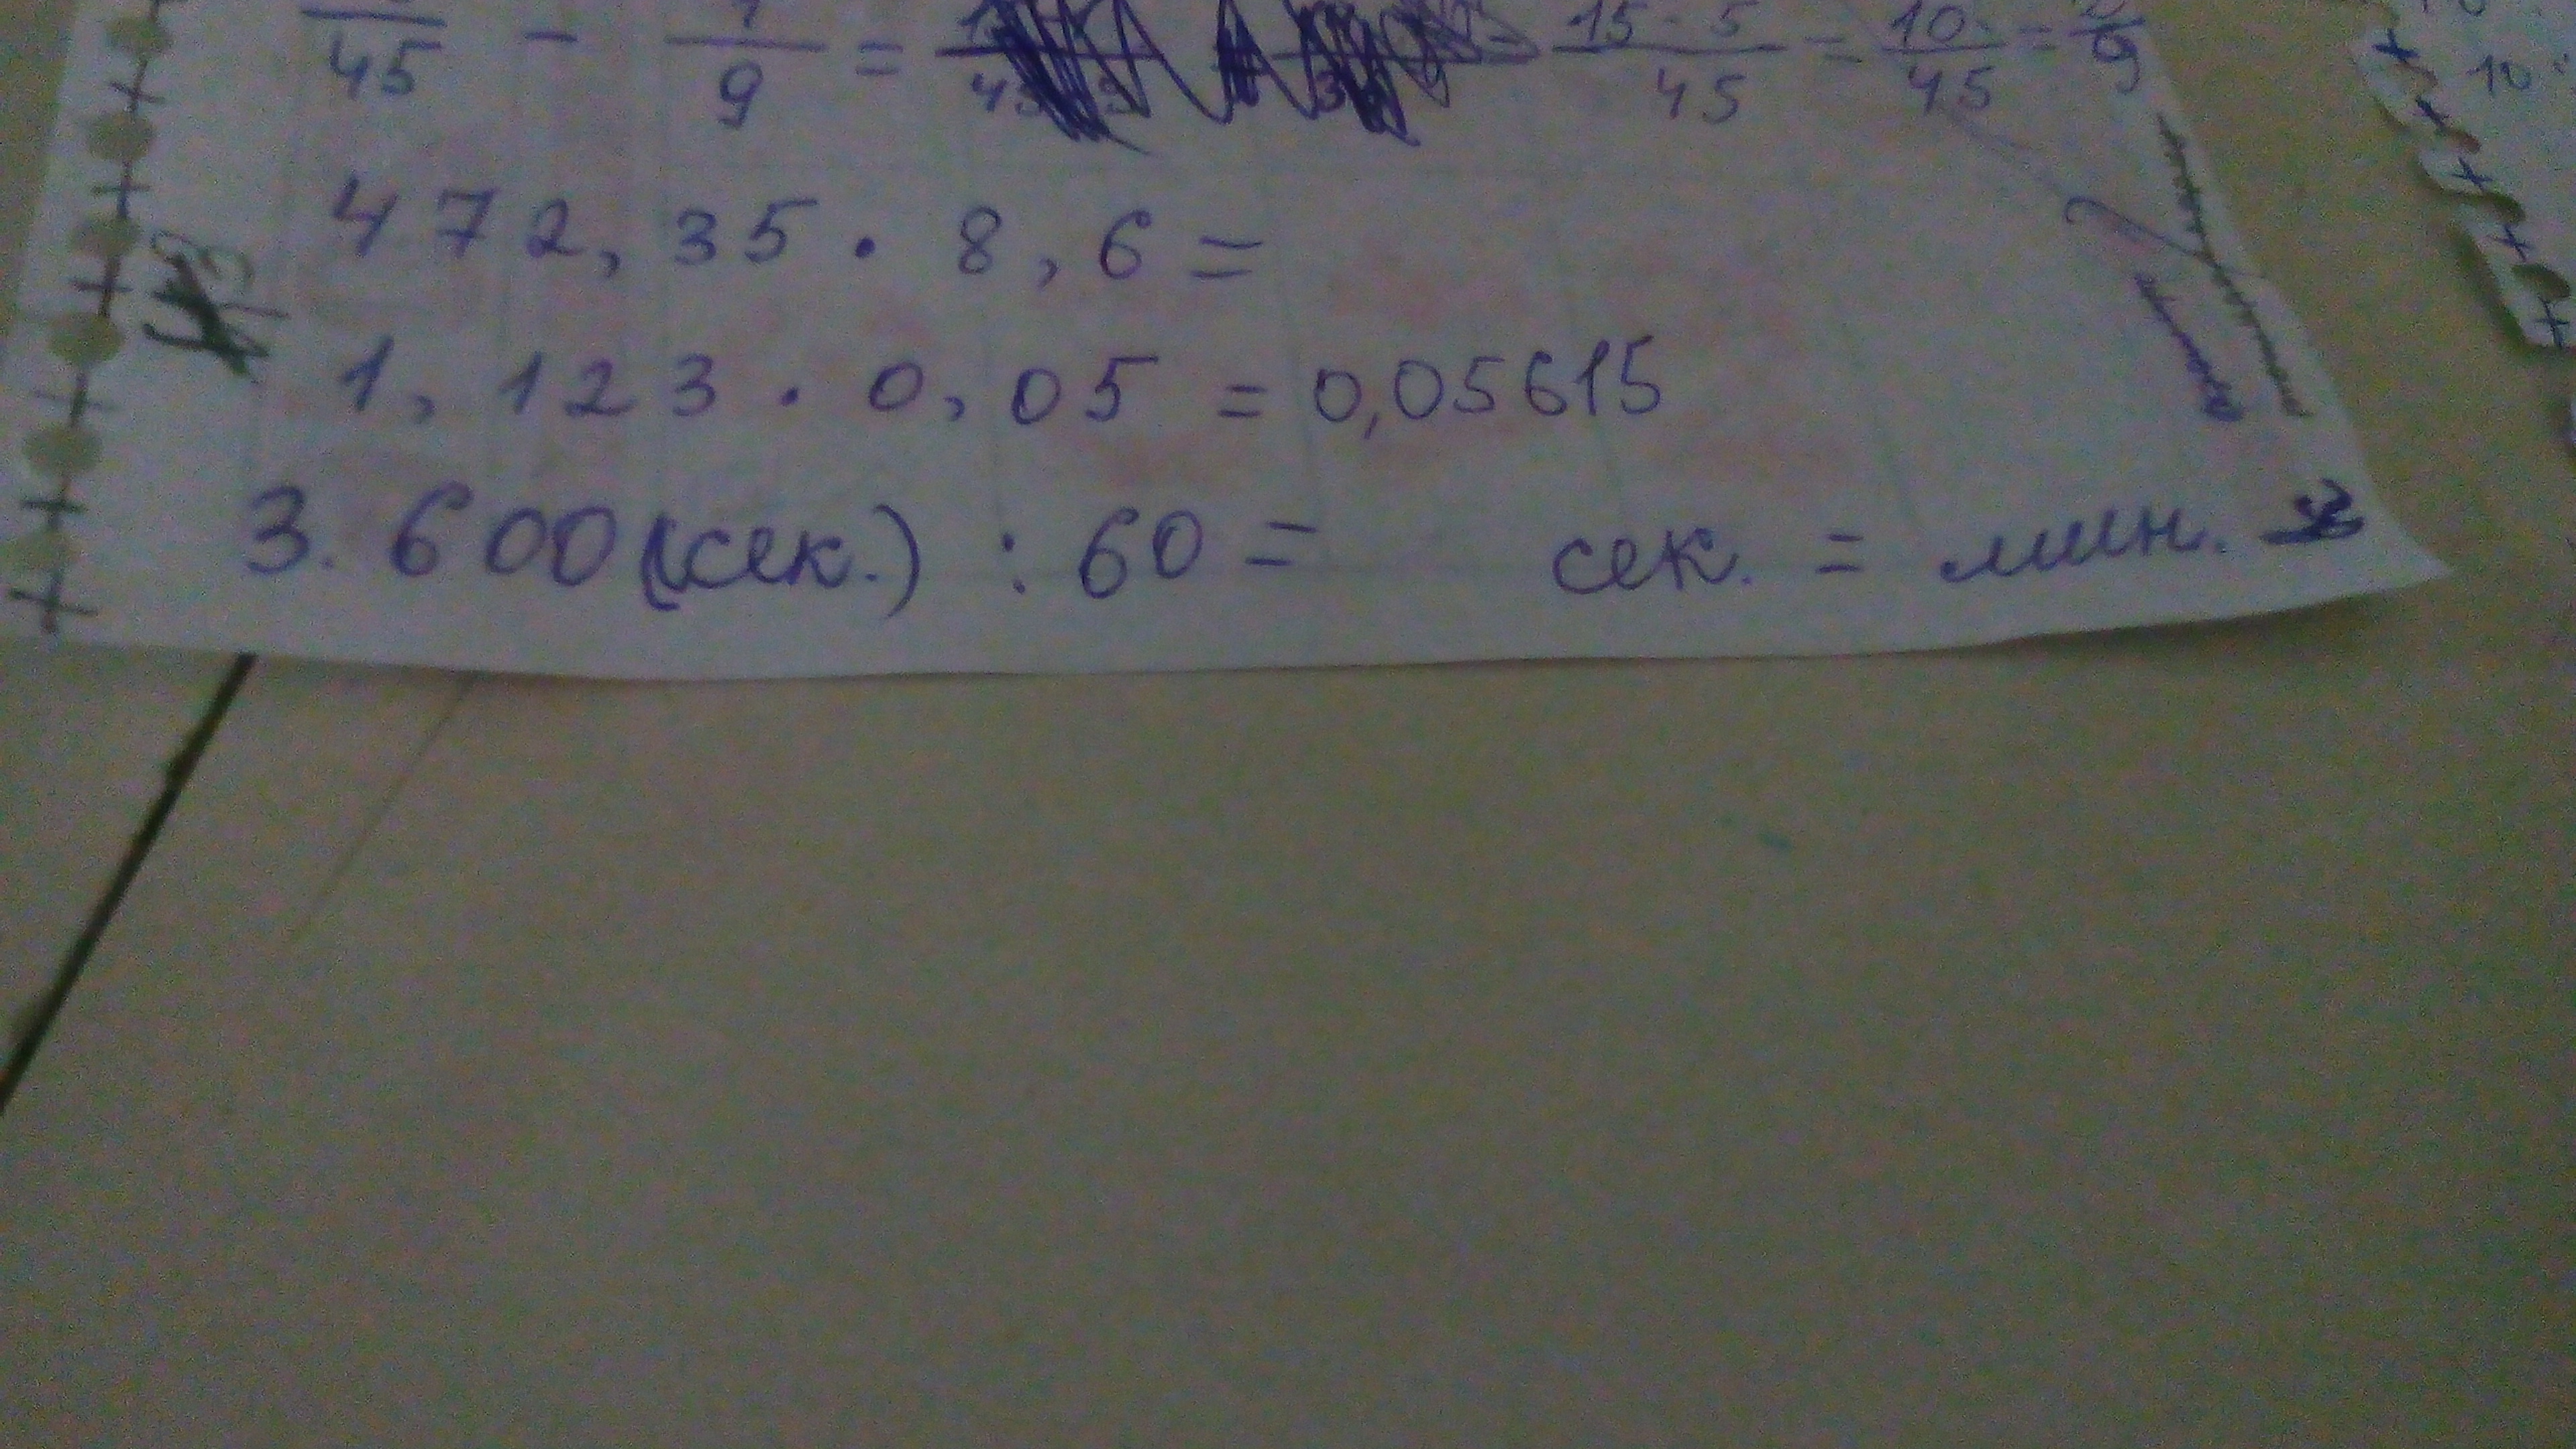 /45 - 1/9 = 15 - 5/45 = 10/45 = 2/9
472,35 · 8,6 =
1,123 · 0,05 = 0,05615
3. 600 (сек.) : 60 = сек. = мин.
10